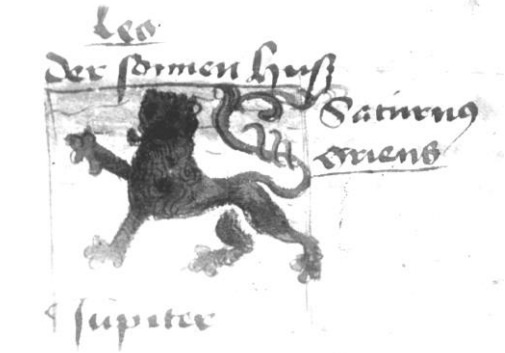 Leo
der sonnen Huß
Saturnus
oriens
Jupiter